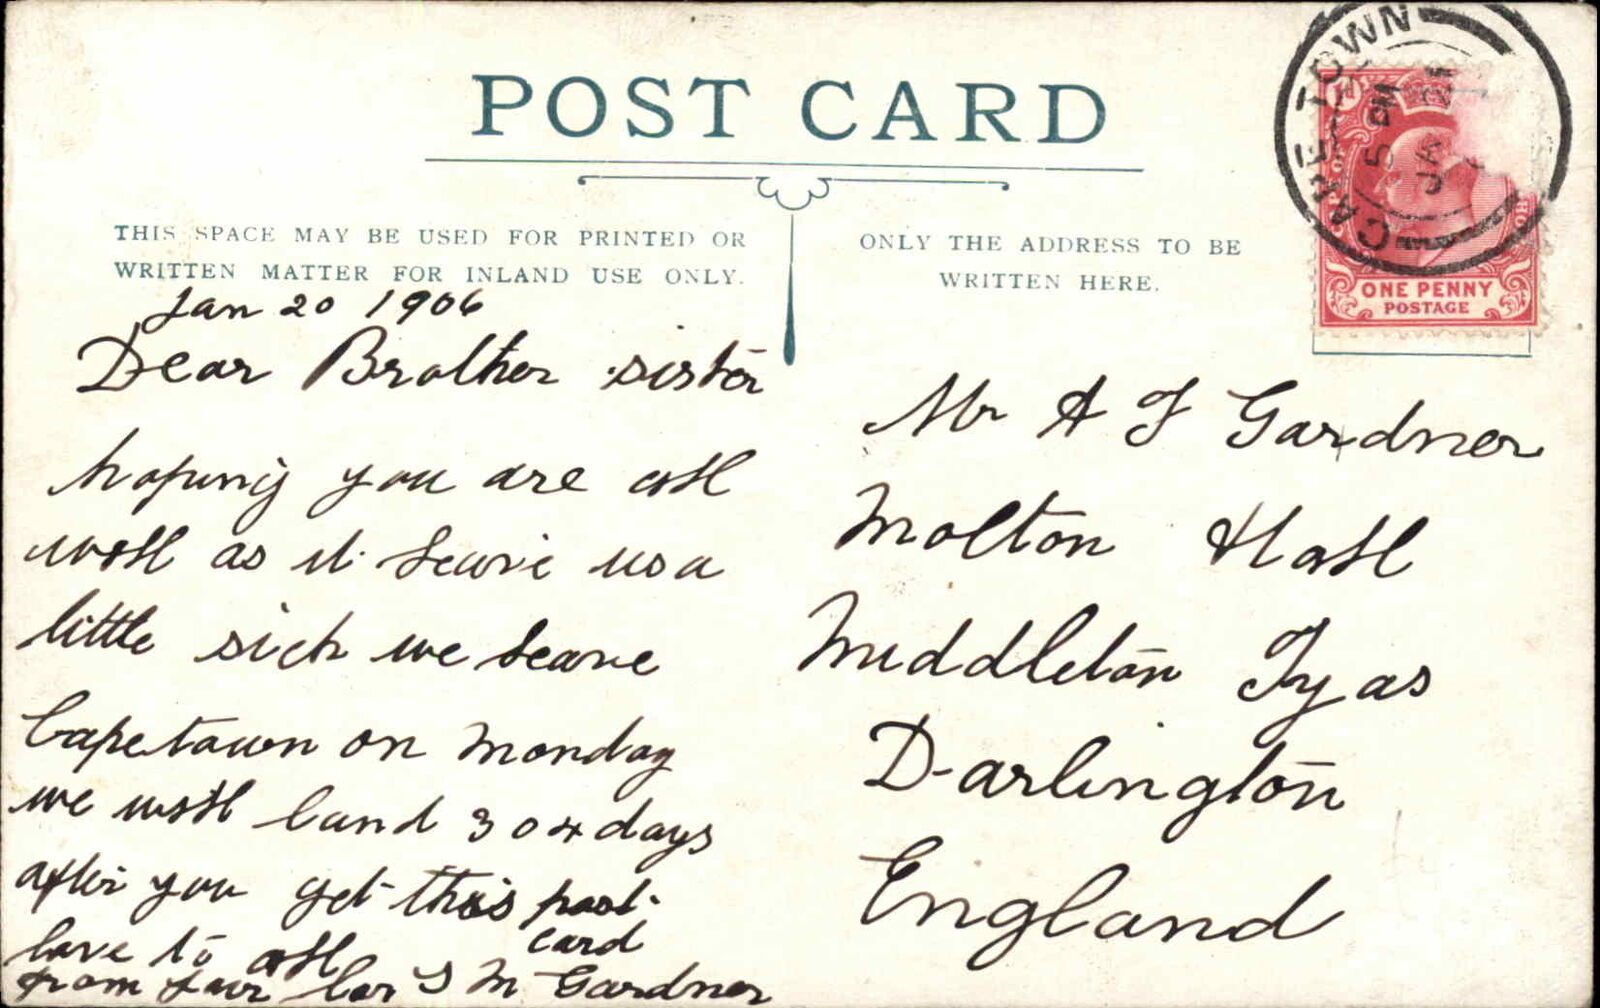 POST CARD
THIS SPACE MAY BE USED FOR PRINTED OR
WRITTEN MATTER FOR INLAND USE ONLY.
Jan 20 1906
Dear Brother sister
hoping you are all
well as it leave us a
little sick we leave
Capetown on Monday
we will land 3 or 4 days
after you get this post
card
love to all
from J M Gardner
ONLY THE ADDRESS TO BE
WRITTEN HERE.
Mr A J Gardner
Molton Hall
Middleton Tyas
Darlington
England
CAPE TOWN
5 PM
JA
ONE PENNY
POSTAGE